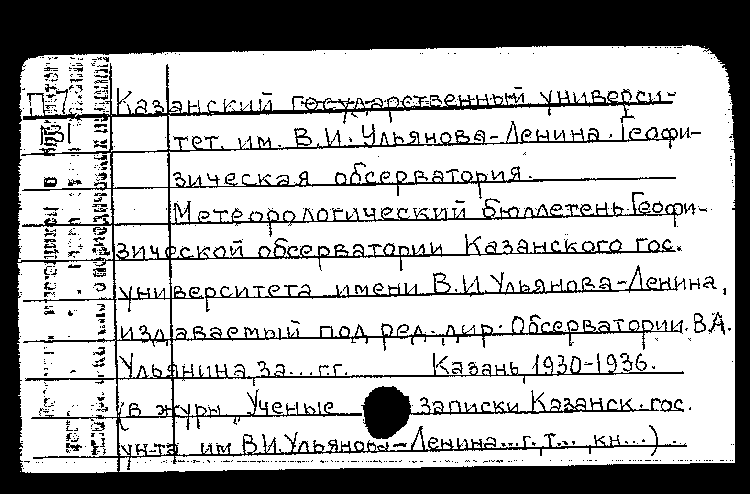 П7
Казанский государственный универси-
тет. им. В.И. Ульянова-Ленина. Геофи-
зическая обсерватория.
Метеорологический бюллетень Геофи-
зической обсерватории Казанского гос.
университета имени В.И. Ульянова-Ленина,
издаваемый под ред. дир. Обсерватории В.А.
Ульянина, за...г.г. Казань, 1930-1936.
(в журн „Ученые записки Казанск. гос.
ун-та им В.И. Ульянова-Ленина...г., т..., кн...).